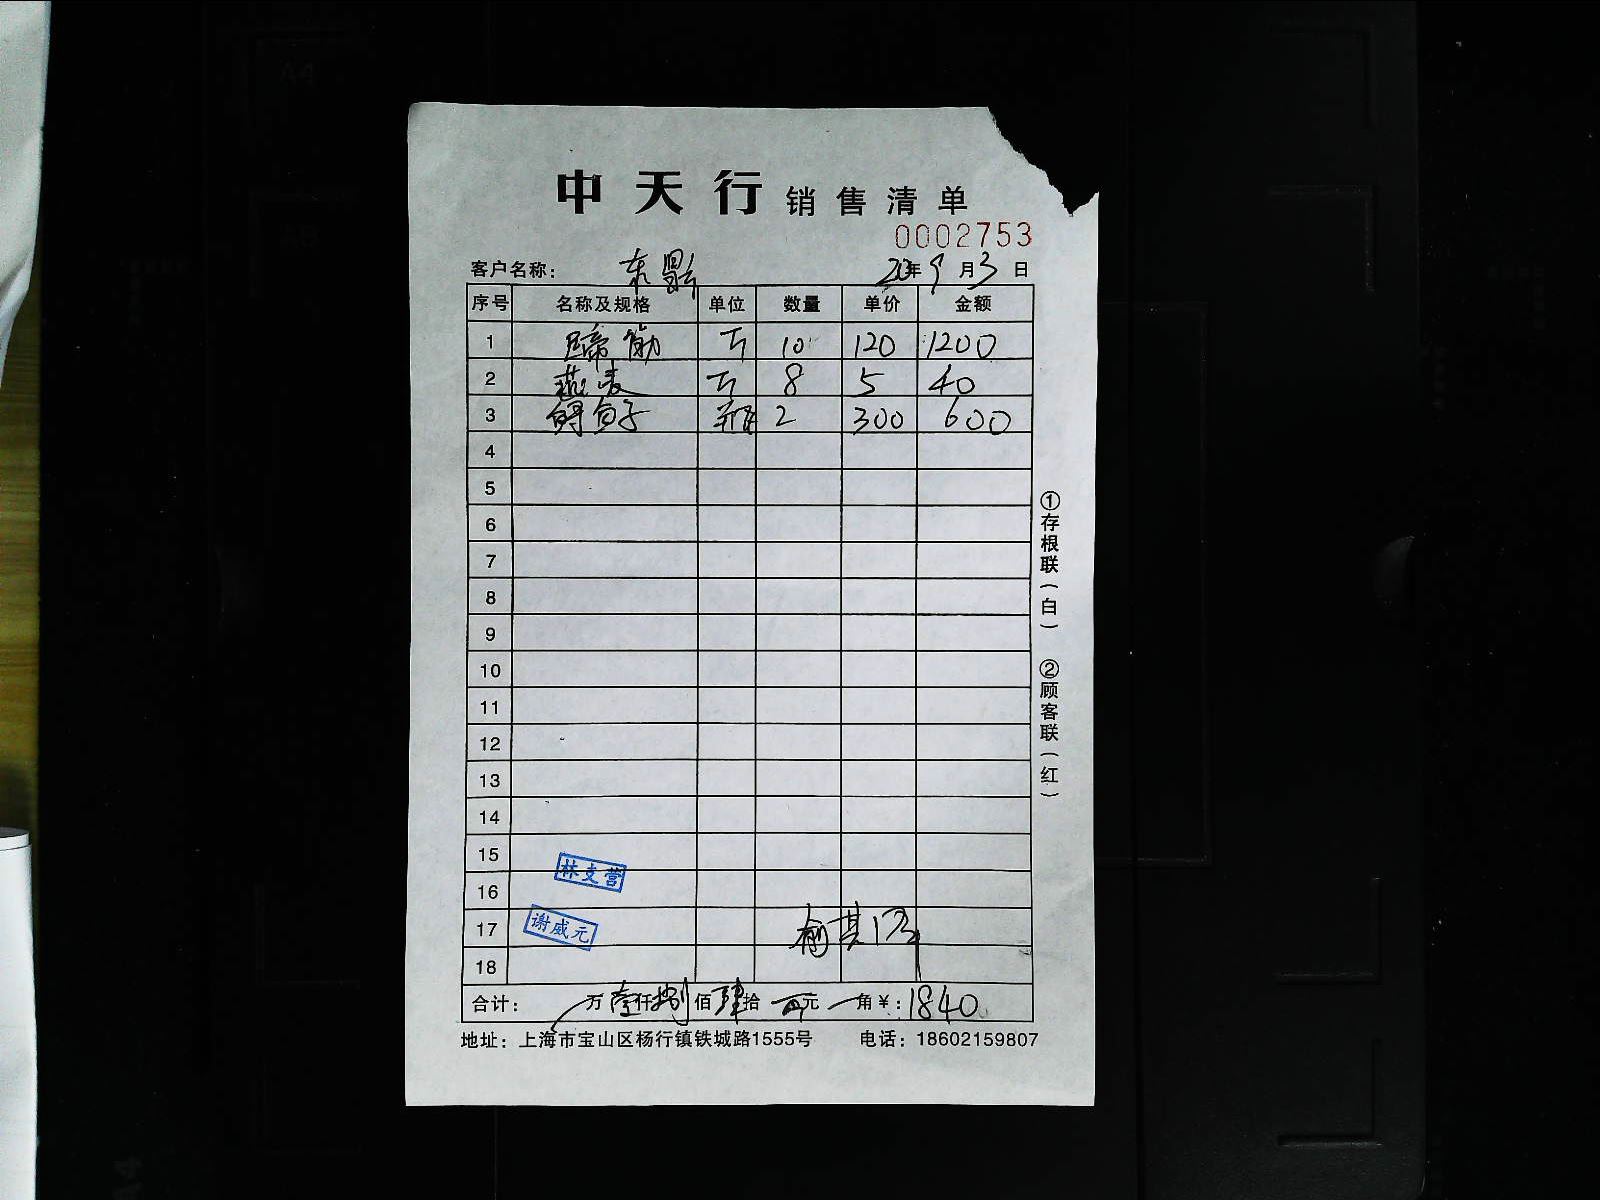 中天行 销售清单
0002753
客户名称： 年9月3日
序号 名称及规格 单位 数量 单价 金额
1 蹄筋 斤 10 120 1200
2 燕麦 斤 8 5 40
3 鲟鱼子 瓶 2 300 600
4
5
6
7
8
9
10
11
12
13
14
15
林支营
16
17
谢威元
18
合计： 万壹仟捌佰肆拾 元 角￥：1840
地址：上海市宝山区杨行镇铁城路1555号 电话：18602159807
①存根联（白）
②顾客联（红）